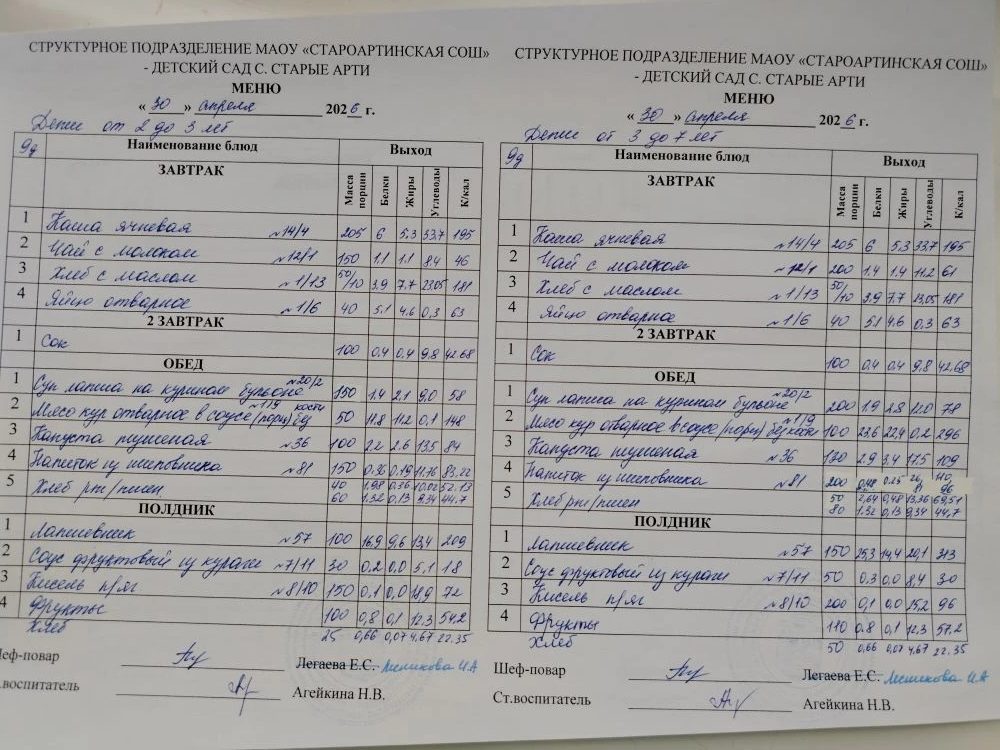 СТРУКТУРНОЕ ПОДРАЗДЕЛЕНИЕ МАОУ «СТАРОАРТИНСКАЯ СОШ»
- ДЕТСКИЙ САД С. СТАРЫЕ АРТИ
МЕНЮ
« 30 » апреля 2026 г.
Дети от 2 до 3 лет
Наименование блюд Выход
ЗАВТРАК Масса порции Белки Жиры Углеводы К/кал
1 Каша ячневая №14/4 205 6 5,3 33,7 195
2 Чай с молоком №12/1 150 1.1 1.1 8,4 46
3 Хлеб с маслом №1/13 50/10 3.9 7.7 23,05 181
4 Яйцо отварное №1/6 40 5.1 4.6 0,3 63
2 ЗАВТРАК
1 Сок 100 0,4 0,4 9,8 42.68
ОБЕД
1 Суп лапша на курином бульоне №20/2 150 1.4 2.1 9,0 58
2 Мясо кур отварное в соусе /порц/ без кости №1/9 50 11.8 11.2 0,1 148
3 Капуста тушеная №36 100 2.2 2.6 13,5 84
4 Напиток из шиповника №81 150 0.36 0,19 83.22
5 Хлеб рж/пшен 40 1.98 0,36 10.02 52.13
60 1.32 0,13 9,34 44.7
ПОЛДНИК
1 Лапшевник №57 100 16,9 9,6 13,4 209
2 Соус фруктовый из кураги №7/11 30 0,2 0,0 5,1 18
3 Кисель №8/10 150 0,1 0,0 11,9 72
4 Фрукты 100 0,8 0,1 12.3
Хлеб 25 0,66 0,07 4,67 22.35
Шеф-повар Легаева Е.С.
.воспитатель Агейкина Н.В.
СТРУКТУРНОЕ ПОДРАЗДЕЛЕНИЕ МАОУ «СТАРОАРТИНСКАЯ СОШ»
- ДЕТСКИЙ САД С. СТАРЫЕ АРТИ
МЕНЮ
« 30 » апреля 2026 г.
Дети от 3 до 7 лет
Наименование блюд Выход
ЗАВТРАК Масса порции Белки Жиры Углеводы К/кал
1 Каша ячневая №14/4 205 6 5,3 33,7 195
2 Чай с молоком №12/1 200 1.4 1.4 11.2 61
3 Хлеб с маслом №1/13 50/10 3.9 7.7 23,05 181
4 Яйцо отварное №1/6 40 5.1 4.6 0,3 63
2 ЗАВТРАК
1 Сок 100 0,4 0,4 9,8 42.68
ОБЕД
1 Суп лапша на курином бульоне №20/2 200 1.9 2.8 12.0 78
2 Мясо кур отварное в соусе /порц/ без кости №1/9 100 23.6 22,4 0,2 296
3 Капуста тушеная №36 130 2.9 3,4 17.5 109
4 Напиток из шиповника №81 200 0,48 0.25 110, 96
5 Хлеб рж/пшен 50 2,64 0,48 13,36 69,51
80 1.32 0,13 9,34 44,7
ПОЛДНИК
1 Лапшевник №57 150 25,3 14,4 20,1 313
2 Соус фруктовый из кураги №7/11 50 0,3 0,0 8,4 30
3 Кисель №8/10 200 0,1 0,0 15,2 96
4 Фрукты 110 0.8 0,1 12,3 57,2
Хлеб 50 0,66 0,07 4,67 22.35
Шеф-повар Легаева Е.С.
Ст.воспитатель Агейкина Н.В.